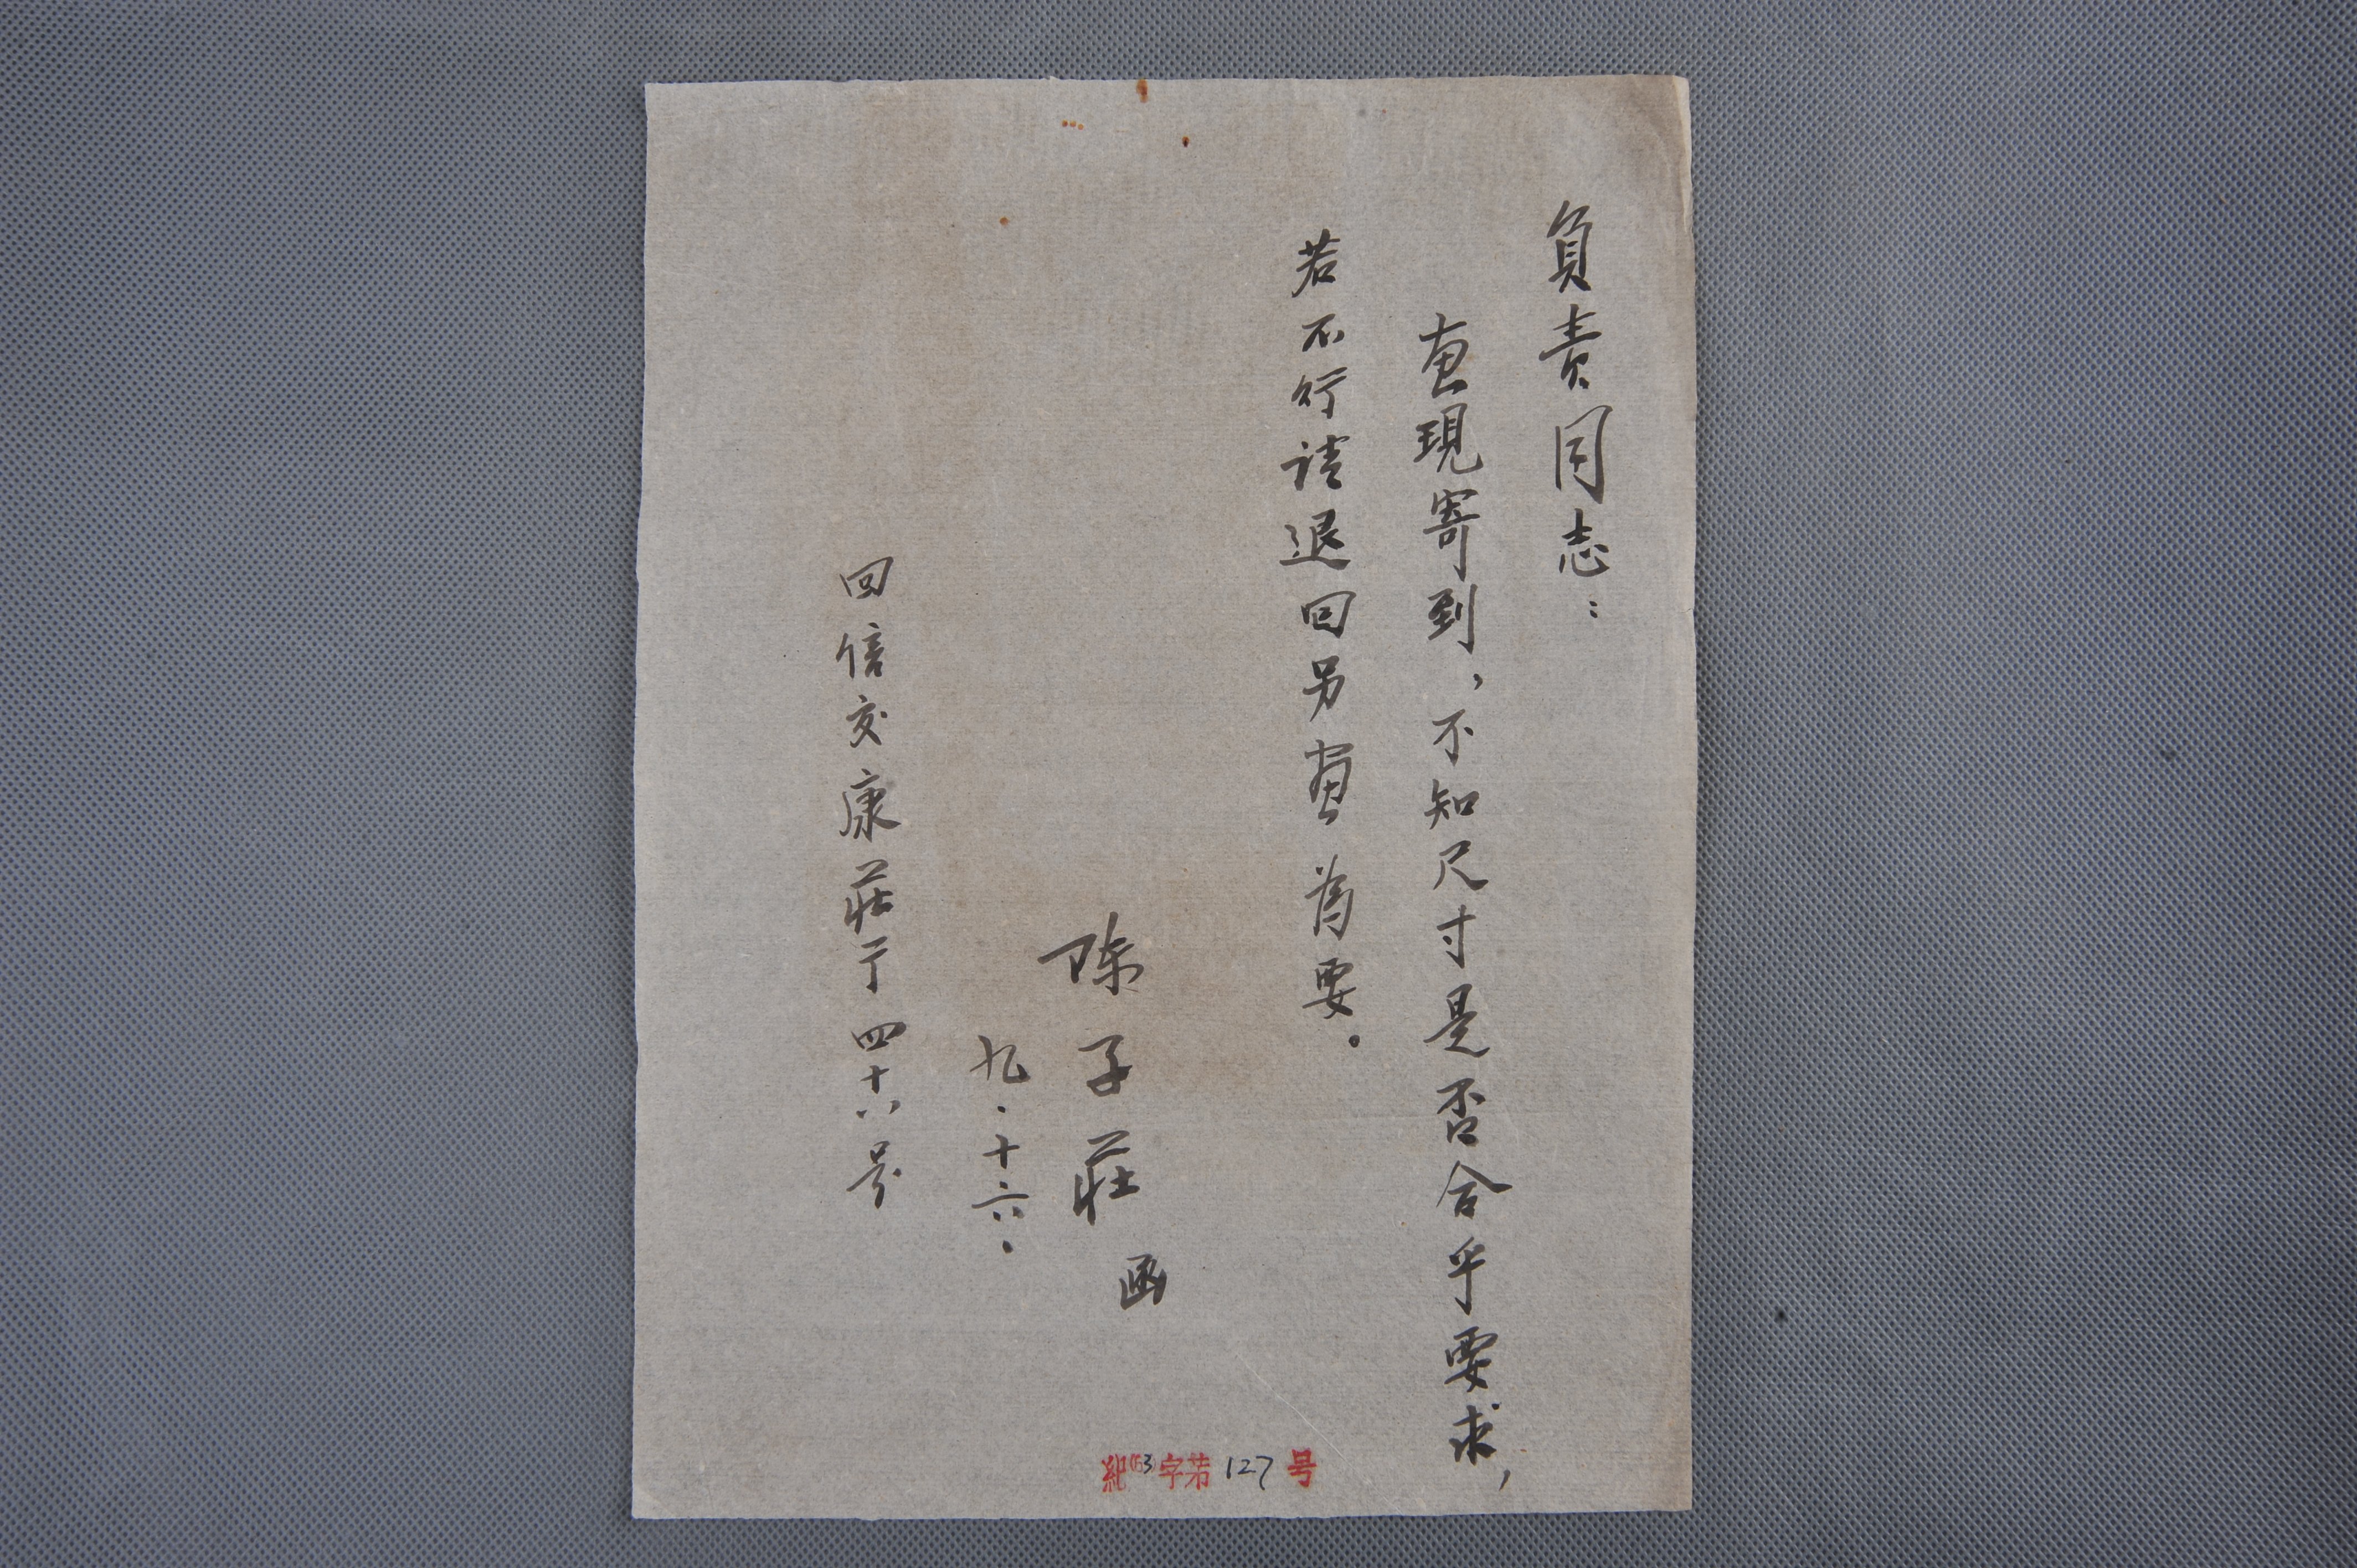 負責同志：
画現寄到，不知尺寸是否合乎要求，
若不行請退回另畫為要。
陈子莊函
九.十六.
回信交康莊丁四十六号
紀(53)字苐127号